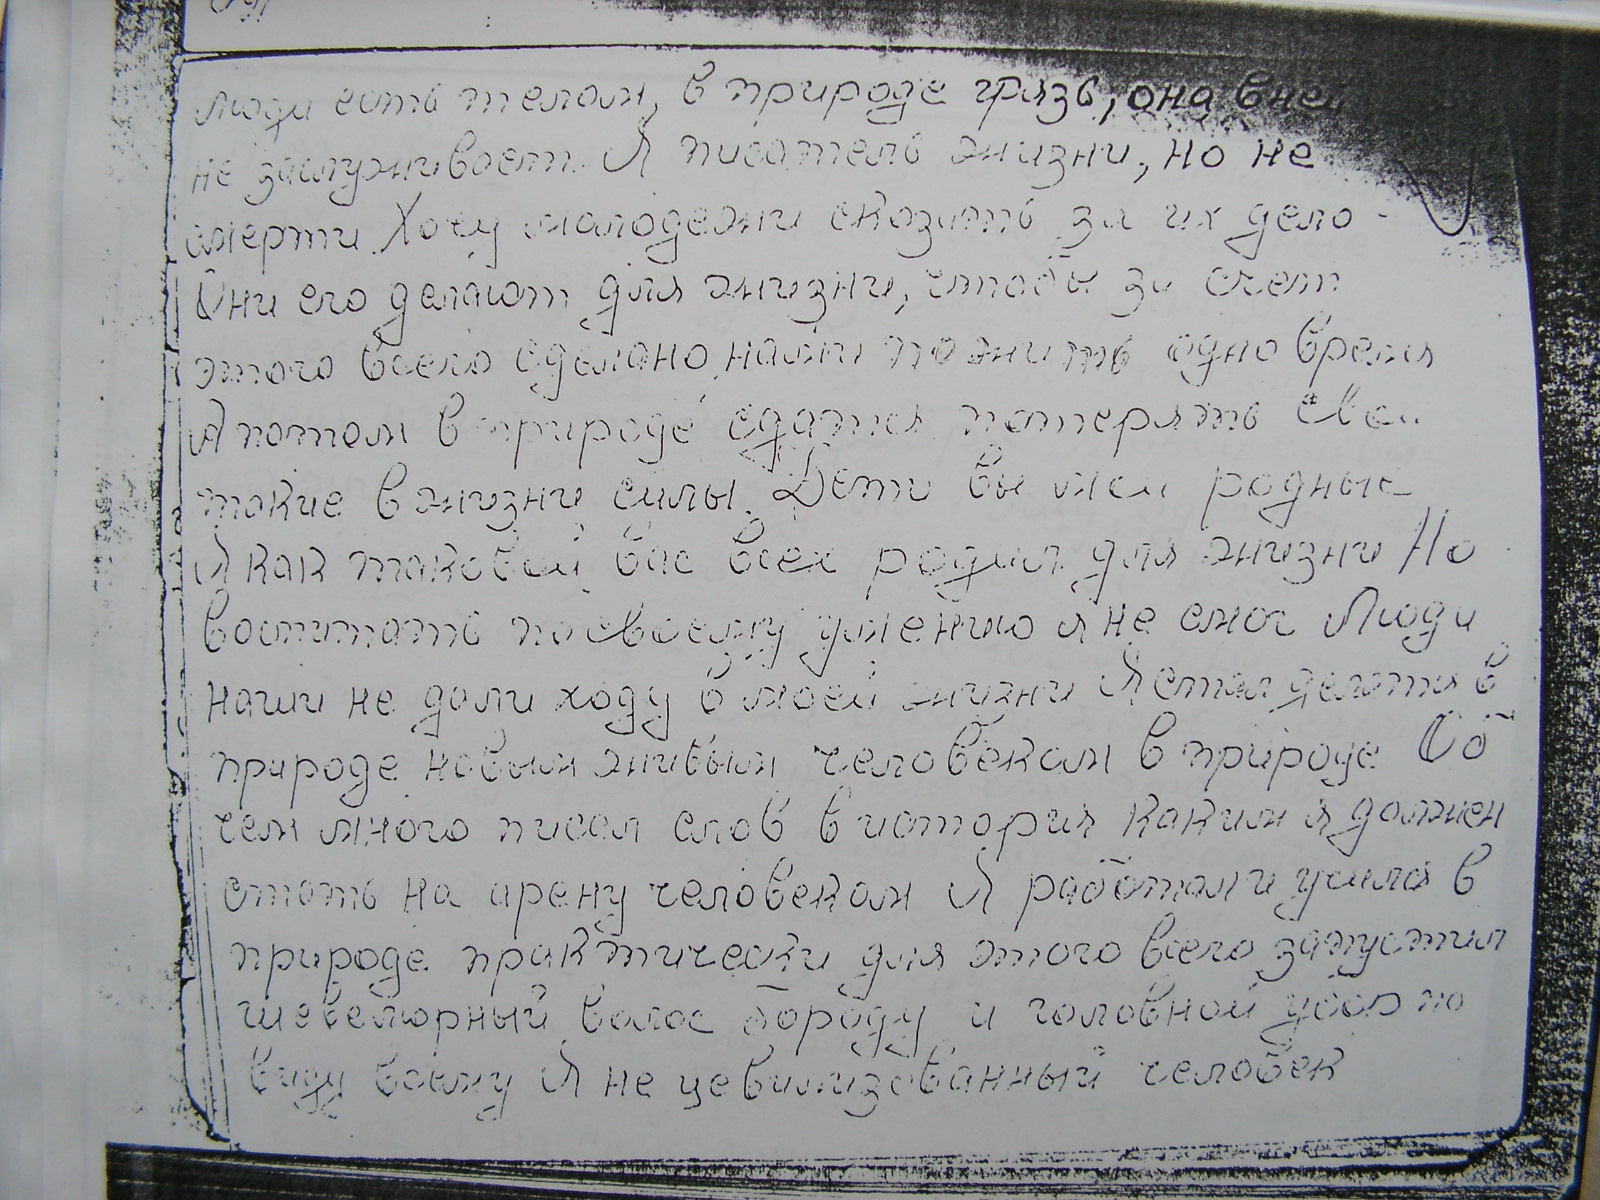 люди есть телом, в природе грязь, она в ней
не заслуживает. Я писатель жизни, но не
смерти. Хочу молодежи сказать за их дело
Они его делают для жизни, чтобы за счет
этого всего сделано нами пожить одно время
А потом в природе сдатся потерять Свои
такие в жизни силы. Дети вы мои родные
Я как таковой вас всех родил для жизни Но
воспитать по своему умению я не смог Люди
наши не дали ходу в моей жизни Я стал делатся в
природе новым живым человеком в природе Об
чем много писал слов в история каким я должен
стать на арену человеком Я работал и учился в
природе практически для этого всего запустил
шевелюрный волос бороду и головной убор по
виду всему Я не цевилизованный человек